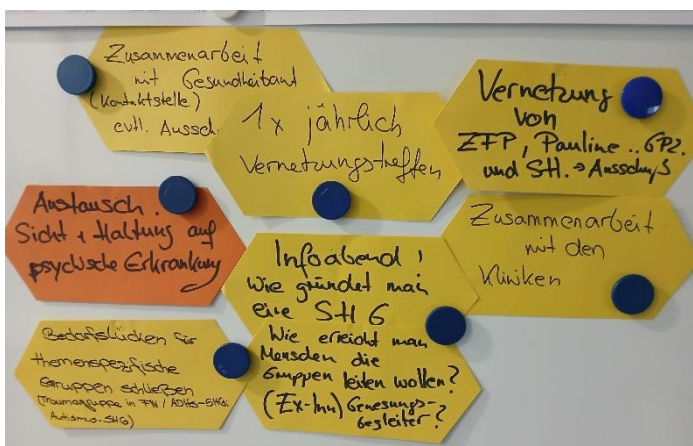 Zusammenarbeit
mit Gesundheitsamt
(Kontaktstelle)
evtl. Aussch.
1x jährlich
Vernetzungstreffen
Vernetzung
von
ZFP, Pauline .. GPZ.
und SH. → Ausschuß
Austausch.
Sicht + Haltung auf
psychische Erkrankung
Infoabend!
Wie gründet man
eine SHG
Zusammenarbeit
mit den
Kliniken
Bedarfslücken für
themenspezifische
Gruppen schließen
(Traumagruppe in FN / ADHS-SHG;
Autismus-SHG)
Wie erreicht man
Menschen die
Gruppen leiten wollen?
(Ex-Inn) Genesungs-
begleiter?